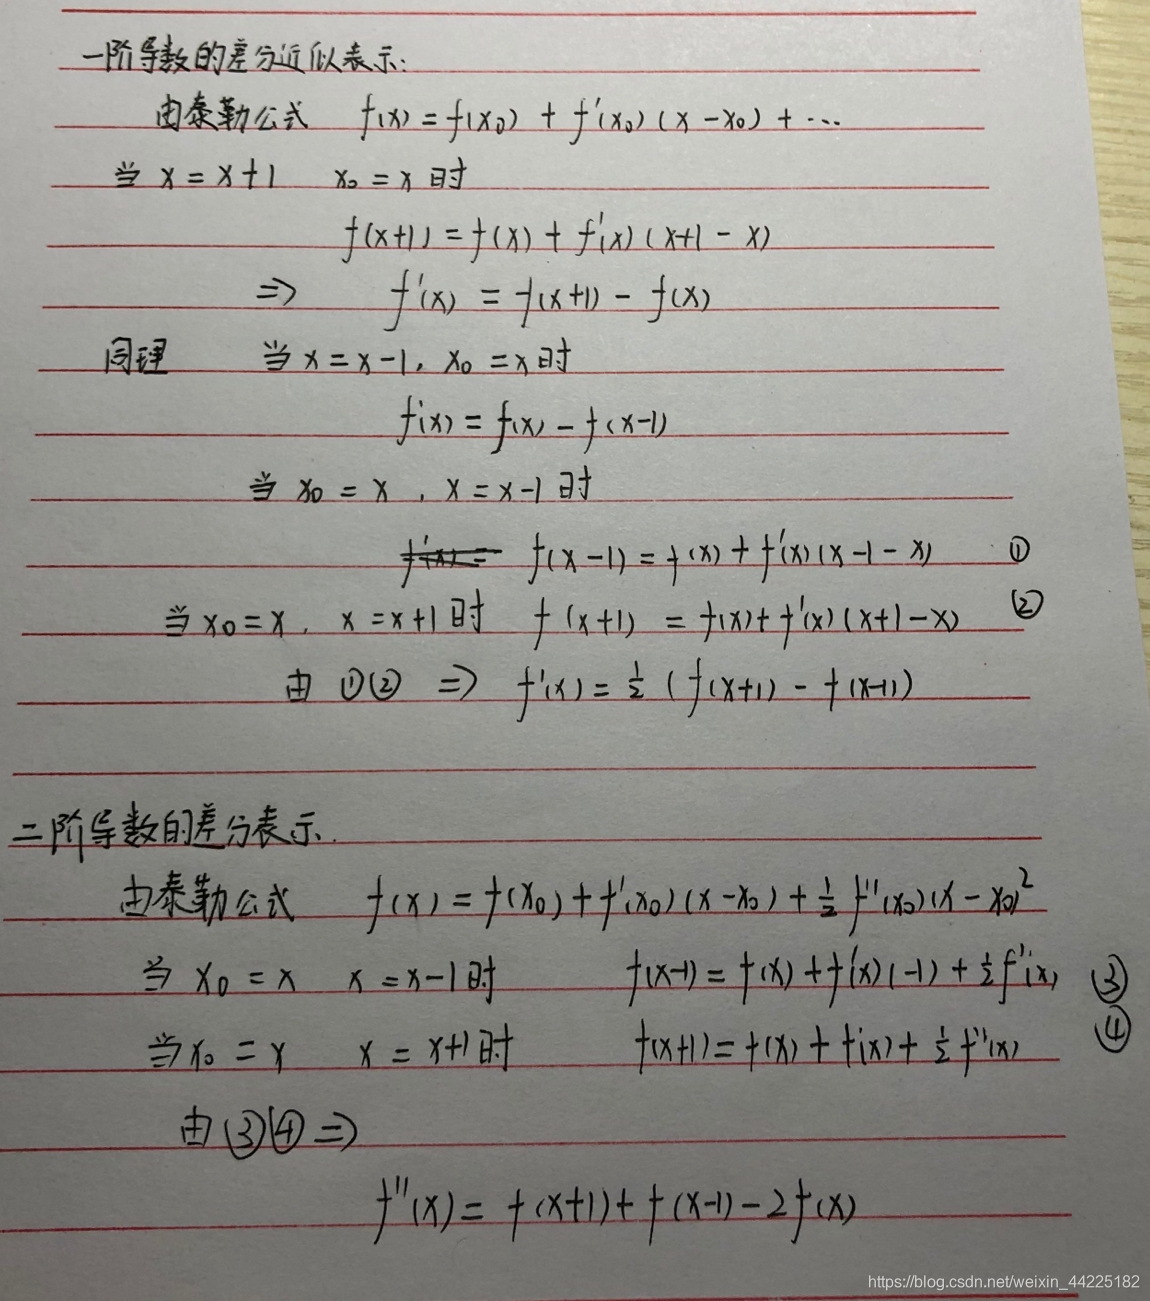 一阶导数的差分近似表示:
由泰勒公式 f(x) = f(x₀) + f'(x₀)(x-x₀) + ...
当 x = x+1 x₀ = x 时
f(x+1) = f(x) + f'(x)(x+1-x)
=> f'(x) = f(x+1) - f(x)
同理 当 x = x-1, x₀ = x 时
f'(x) = f(x) - f(x-1)
当 x₀ = x , x = x-1 时
f(x-1) = f(x) + f'(x)(x-1-x) ①
当 x₀ = x, x = x+1 时 f(x+1) = f(x) + f'(x)(x+1-x) ②
由 ①② => f'(x) = ½ (f(x+1) - f(x-1))
二阶导数的差分表示.
由泰勒公式 f(x) = f(x₀) + f'(x₀)(x-x₀) + ½ f''(x₀)(x-x₀)²
当 x₀ = x x = x-1 时 f(x-1) = f(x) + f'(x)(-1) + ½ f''(x) ③
当 x₀ = x x = x+1 时 f(x+1) = f(x) + f'(x) + ½ f''(x) ④
由 ③④ =>
f''(x) = f(x+1) + f(x-1) - 2f(x)
https://blog.csdn.net/weixin_44225182